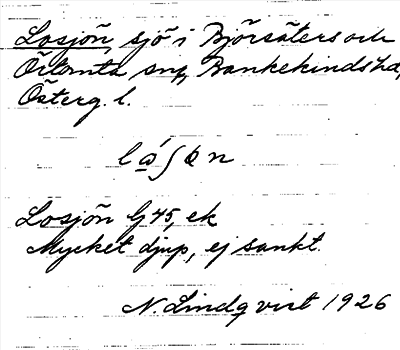 Losjön, sjö i Björsäters och
Örtomta snr, Bankekinds hd,
Österg. l.
Losjön Gj 45, ek
Mycket djup, ej sankt.
N. Lindqvist 1926